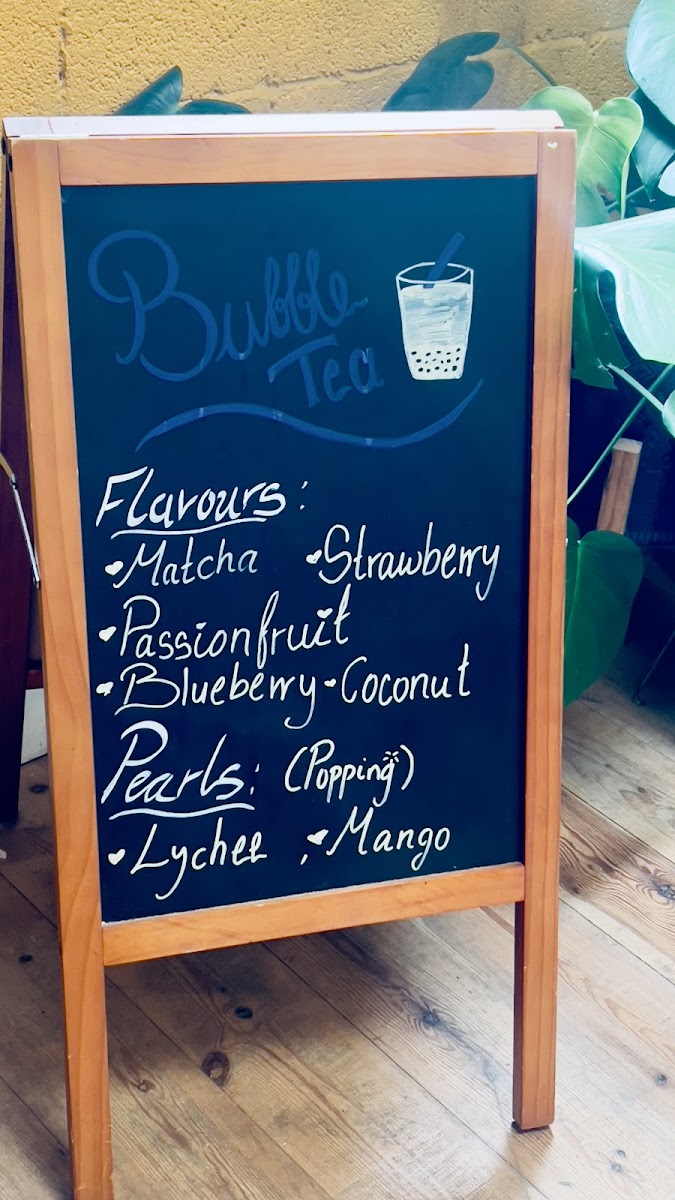 Bubble
Tea
Flavours:
Matcha Strawberry
Passionfruit
Blueberry Coconut
Pearls: (Popping)
Lychee , Mango